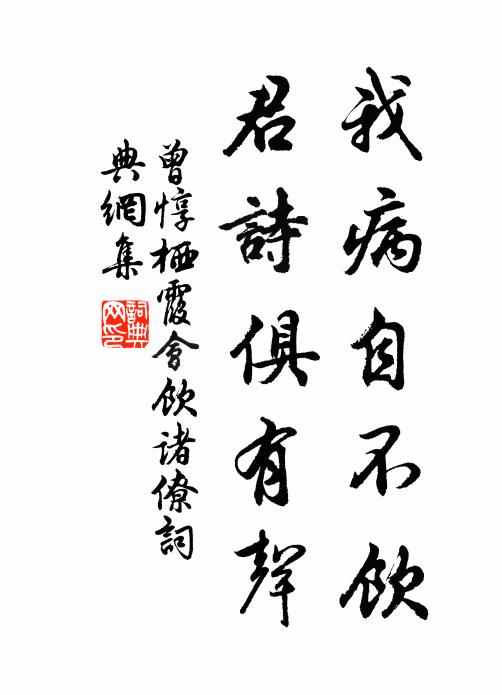 我病自不飲
君詩俱有聲
曾惇栖霞會飲諸僚詞
典網集
詞典
网印